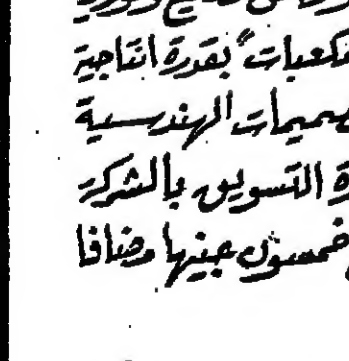 وتوريد
مكعبات" بقدرة انتاجية
صميمات الهندسية
ة التسويق بالشركة
خمسون جنيها مضافا